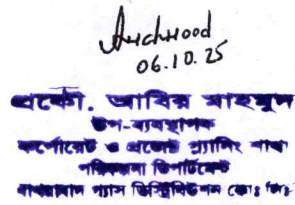 06.10.25
প্রকৌ. আবির মাহমুদ
উপ-ব্যবস্থাপক
কর্পোরেট ও প্রজেক্ট প্ল্যানিং শাখা
পরিকল্পনা ডিপার্টমেন্ট
বাখরাবাদ গ্যাস ডিস্ট্রিবিউশন কোঃ লিঃ